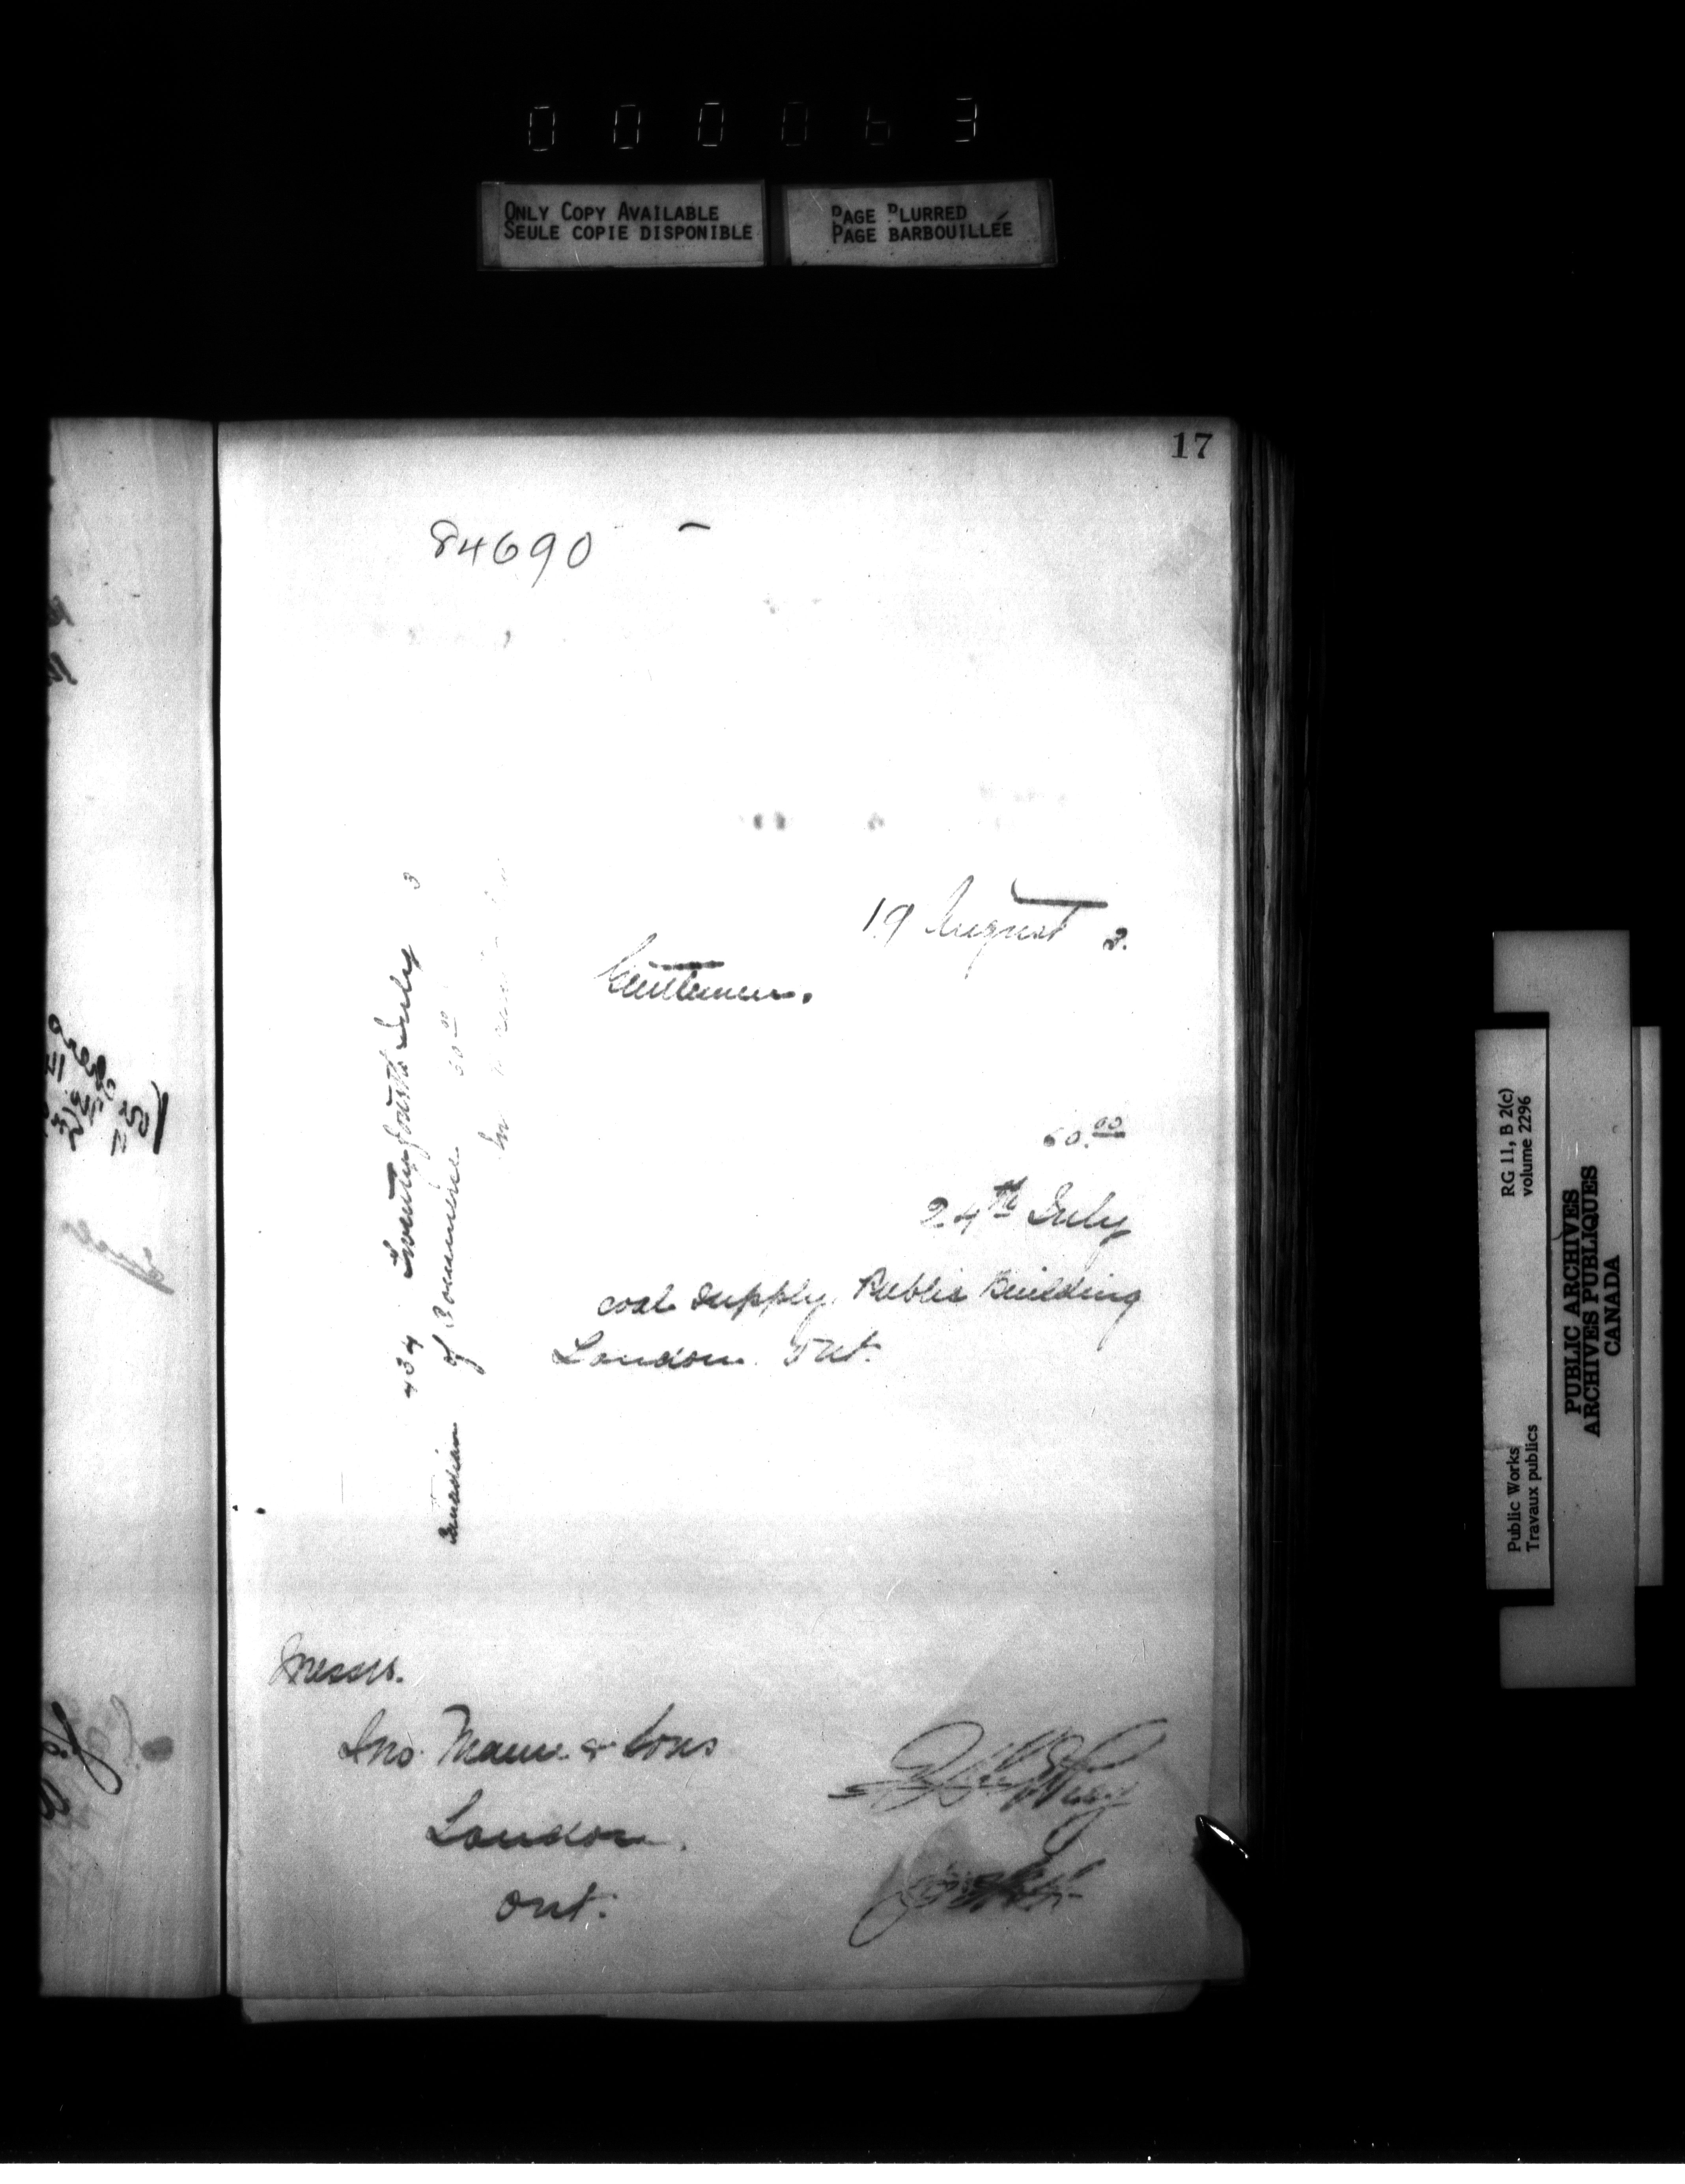 000063
ONLY COPY AVAILABLE
SEULE COPIE DISPONIBLE
PAGE BLURRED
PAGE BARBOUILLÉE
17
84690 -
19 August 2.
Gentlemen.
60.00
24th July
coal supply Public Building
London Ont.
434 Twenty fourth July 3
Canadian of Commerce 60 00
Messrs.
Jno Mann & Sons
London.
Ont.
RG 11, B 2(c)
volume 2296
Public Works
Travaux publics
PUBLIC ARCHIVES
ARCHIVES PUBLIQUES
CANADA